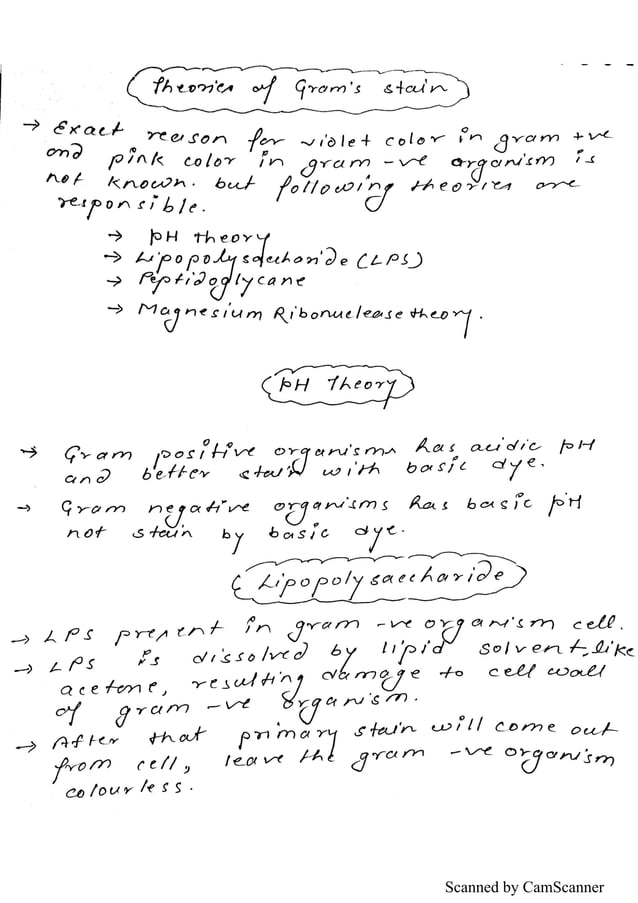 Theories of Gram's stain
→ Exact reason for violet color in gram +ve
and pink color in gram -ve organism is
not known. but following theories are
responsible.
→ pH theory
→ Lipopolysaccharide (LPS)
→ Peptidoglycane
→ Magnesium Ribonuclease theory.
pH Theory
→ Gram positive organisms has acidic pH
and better stain with basic dye.
→ Gram negative organisms has basic pH
not stain by basic dye.
Lipopolysaccharide
→ LPS present in gram -ve organism cell.
→ LPS is dissolved by lipid solvent, like
acetone, resulting damage to cell wall
of gram -ve organism.
→ After that primary stain will come out
from cell, leave the gram -ve organism
colourless.
Scanned by CamScanner